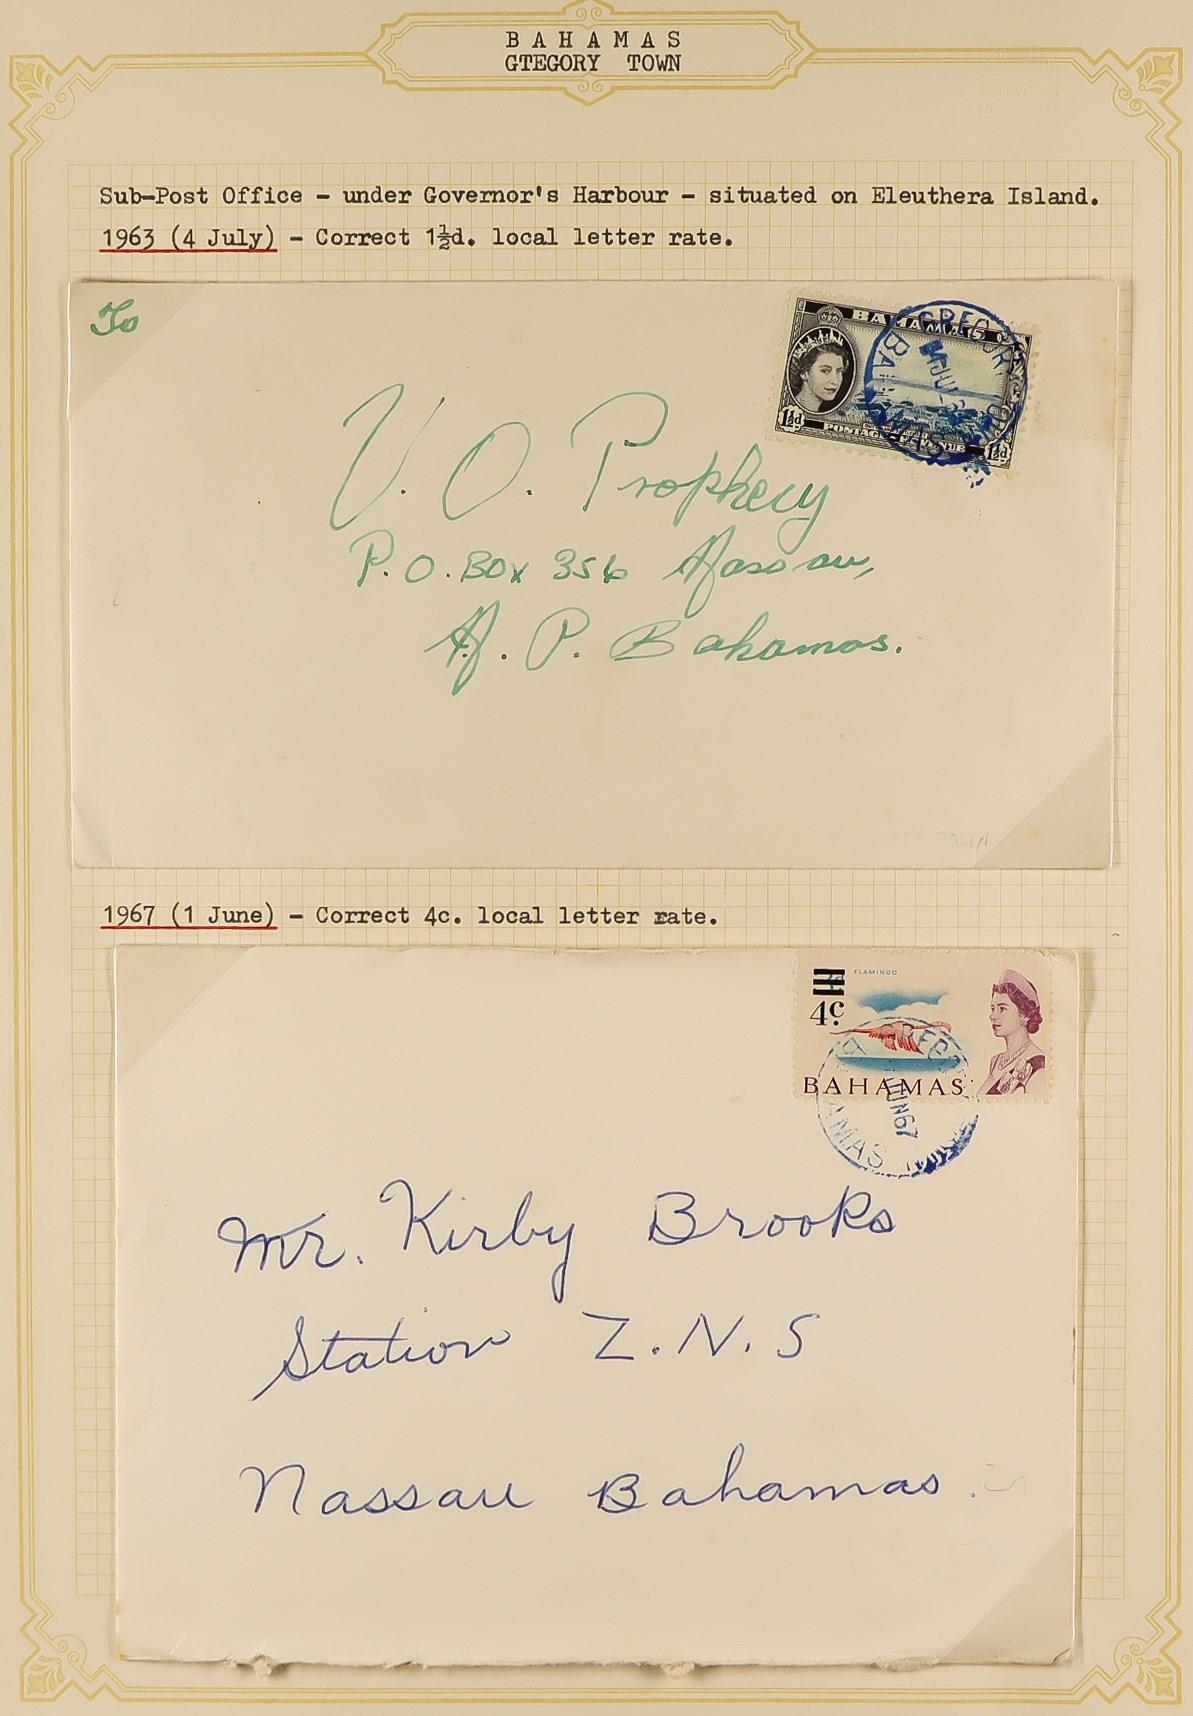 BAHAMAS
GTEGORY TOWN
Sub-Post Office - under Governor's Harbour - situated on Eleuthera Island.
1963 (4 July) - Correct 1½d. local letter rate.
To
BAHAMAS
1½d
POSTAGE
1½d
GREGORY TOWN
BAHAMAS
V. O. Prophecy
P.O. BOX 356 Nassau,
N. P. Bahamas.
1967 (1 June) - Correct 4c. local letter rate.
FLAMINGO
4c
BAHAMAS
JUN 67
Mr. Kirby Brooks
Station Z.N.S
Nassau Bahamas.